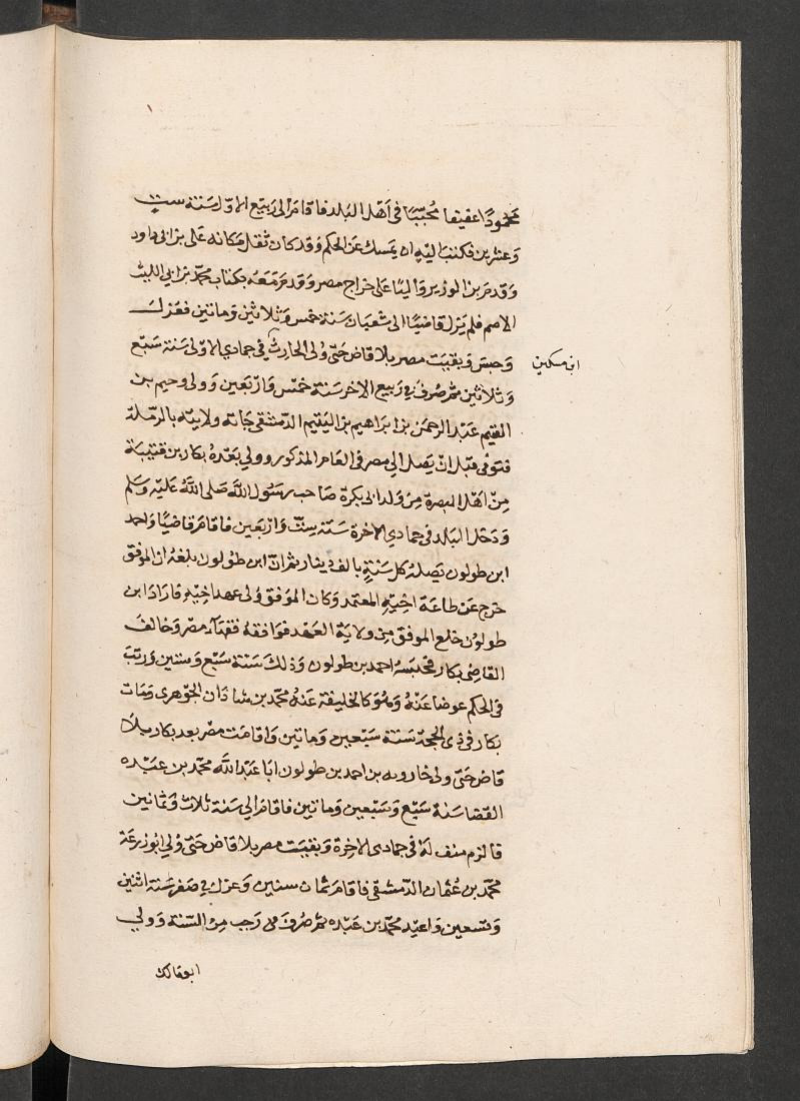 محمودًا عفيفا مُحبّبًا في اَهْل البلد فاقام الى ربيع الاول سَنة ست
وَعشرين فكتب اليْه ان يمسك عَن الحكم وَقد كان ثقل مكانه عَلى بن ابى داود
وَقدم بن الوزير وَاليًا على خراج مصر وَقدم مَعَه بكتاب محمّد بن ابي الليث
الاصم فلم يَزل قاضيًا الى شعبان سَنة خمس وَثلاثين وَماتين فعُزل
وَحبسَ وَبقيَت مصر بلا قاض حَتّى وُلى الحارث في جمادي الاولى سَنة سَبع
ابن مسكين
وَثلاثين ثم صُرفَ في رَبيع الاخر سَنة خمسْ وَارْبَعين وَولى دحيم بن
اليقيم عَبْد الرحمَن بن ابراهيم بن اليَقيم الدّمشقى جَاته ولايته بالرّملة
فتوفى قبل انْ يَصل الي مصر فى العَام المذكور وولي بَعْدهُ بكار بن قتيبَة
مِنْ اهْل البصرة مِنْ وُلد ابى بكرة صَاحب رسُول اللَّه صَلى اللَّه عَليْه وَسَلم
وَدَخل البَلد فى جمادي الاخرة سَنَة ستّ وَارْبَعين فاقامَ قاضيًا وَاحمد
ابن طولون يَصلهُ كل سَنةٍ بالف دينار ثم انّ ابن طُولون بلغهُ ان الموفق
خرج عَن طاعَة اخيْهِ المعتمد وَكان الموَفق وُلى عهد اخيْهِ فارَادَ ابن
طولوُن خلع الموفق مِن ولايَة العَهْد فوَافقهُ فقهَآء مصر وَخالفَ
القاضِى بكار فحبَسَهُ احمد بن طولون وَذلكَ سَنَة سَبْع وَستين وَرتبَ
فى الحكم عوضا عَنْهُ وَهُوَ كالخليفة عَنهُ محمّد بن شاذان الجوْهري وَمَات
بكار فى ذى الحجة سَنَة سَبْعين وَماتين وَاقامَت مصر بعد بكار بلا
قاض حَتّى ولى خارويه بن احمد بن طولون ابَا عَبد اللَّه محمّد بن عَبْده
القضا سَنة سَبْع وَسَبْعين وَماتين فاقامَ الي سَنة ثلاث وَثمانين
فالزم منزله فى جمادى الاخِرة وَبقيَت مصر بلا قاض حَتّى وُلي ابُو زرعَة
محمّد بن عُثمان الدّمشقى فاقام ثمان سنين وَعزل في صَفر سَنة اثنين
وَتسعين وَاعيْد محمّد بن عَبْده ثم صُرفَ فى رَجب مِن السّنة وَولي
ابو مالك